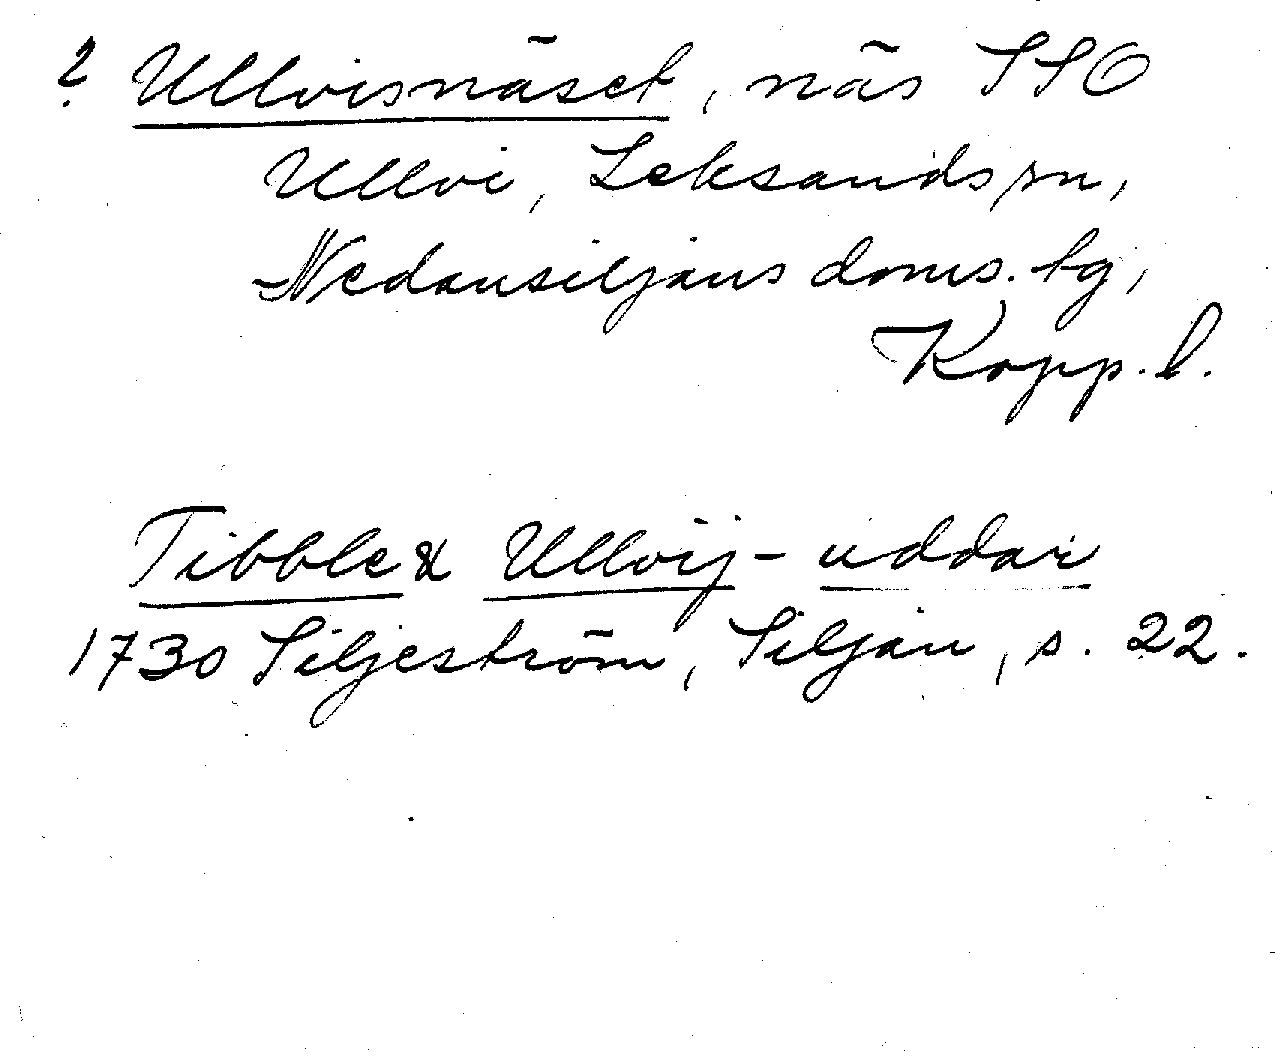 ? Ullvisnäset, näs SSO
Ullvi, Leksands sn,
Nedansiljans doms. tg,
Kopp. l.
Tibble & Ullvij-uddar
1730 Siljeström, Siljan, s. 22.